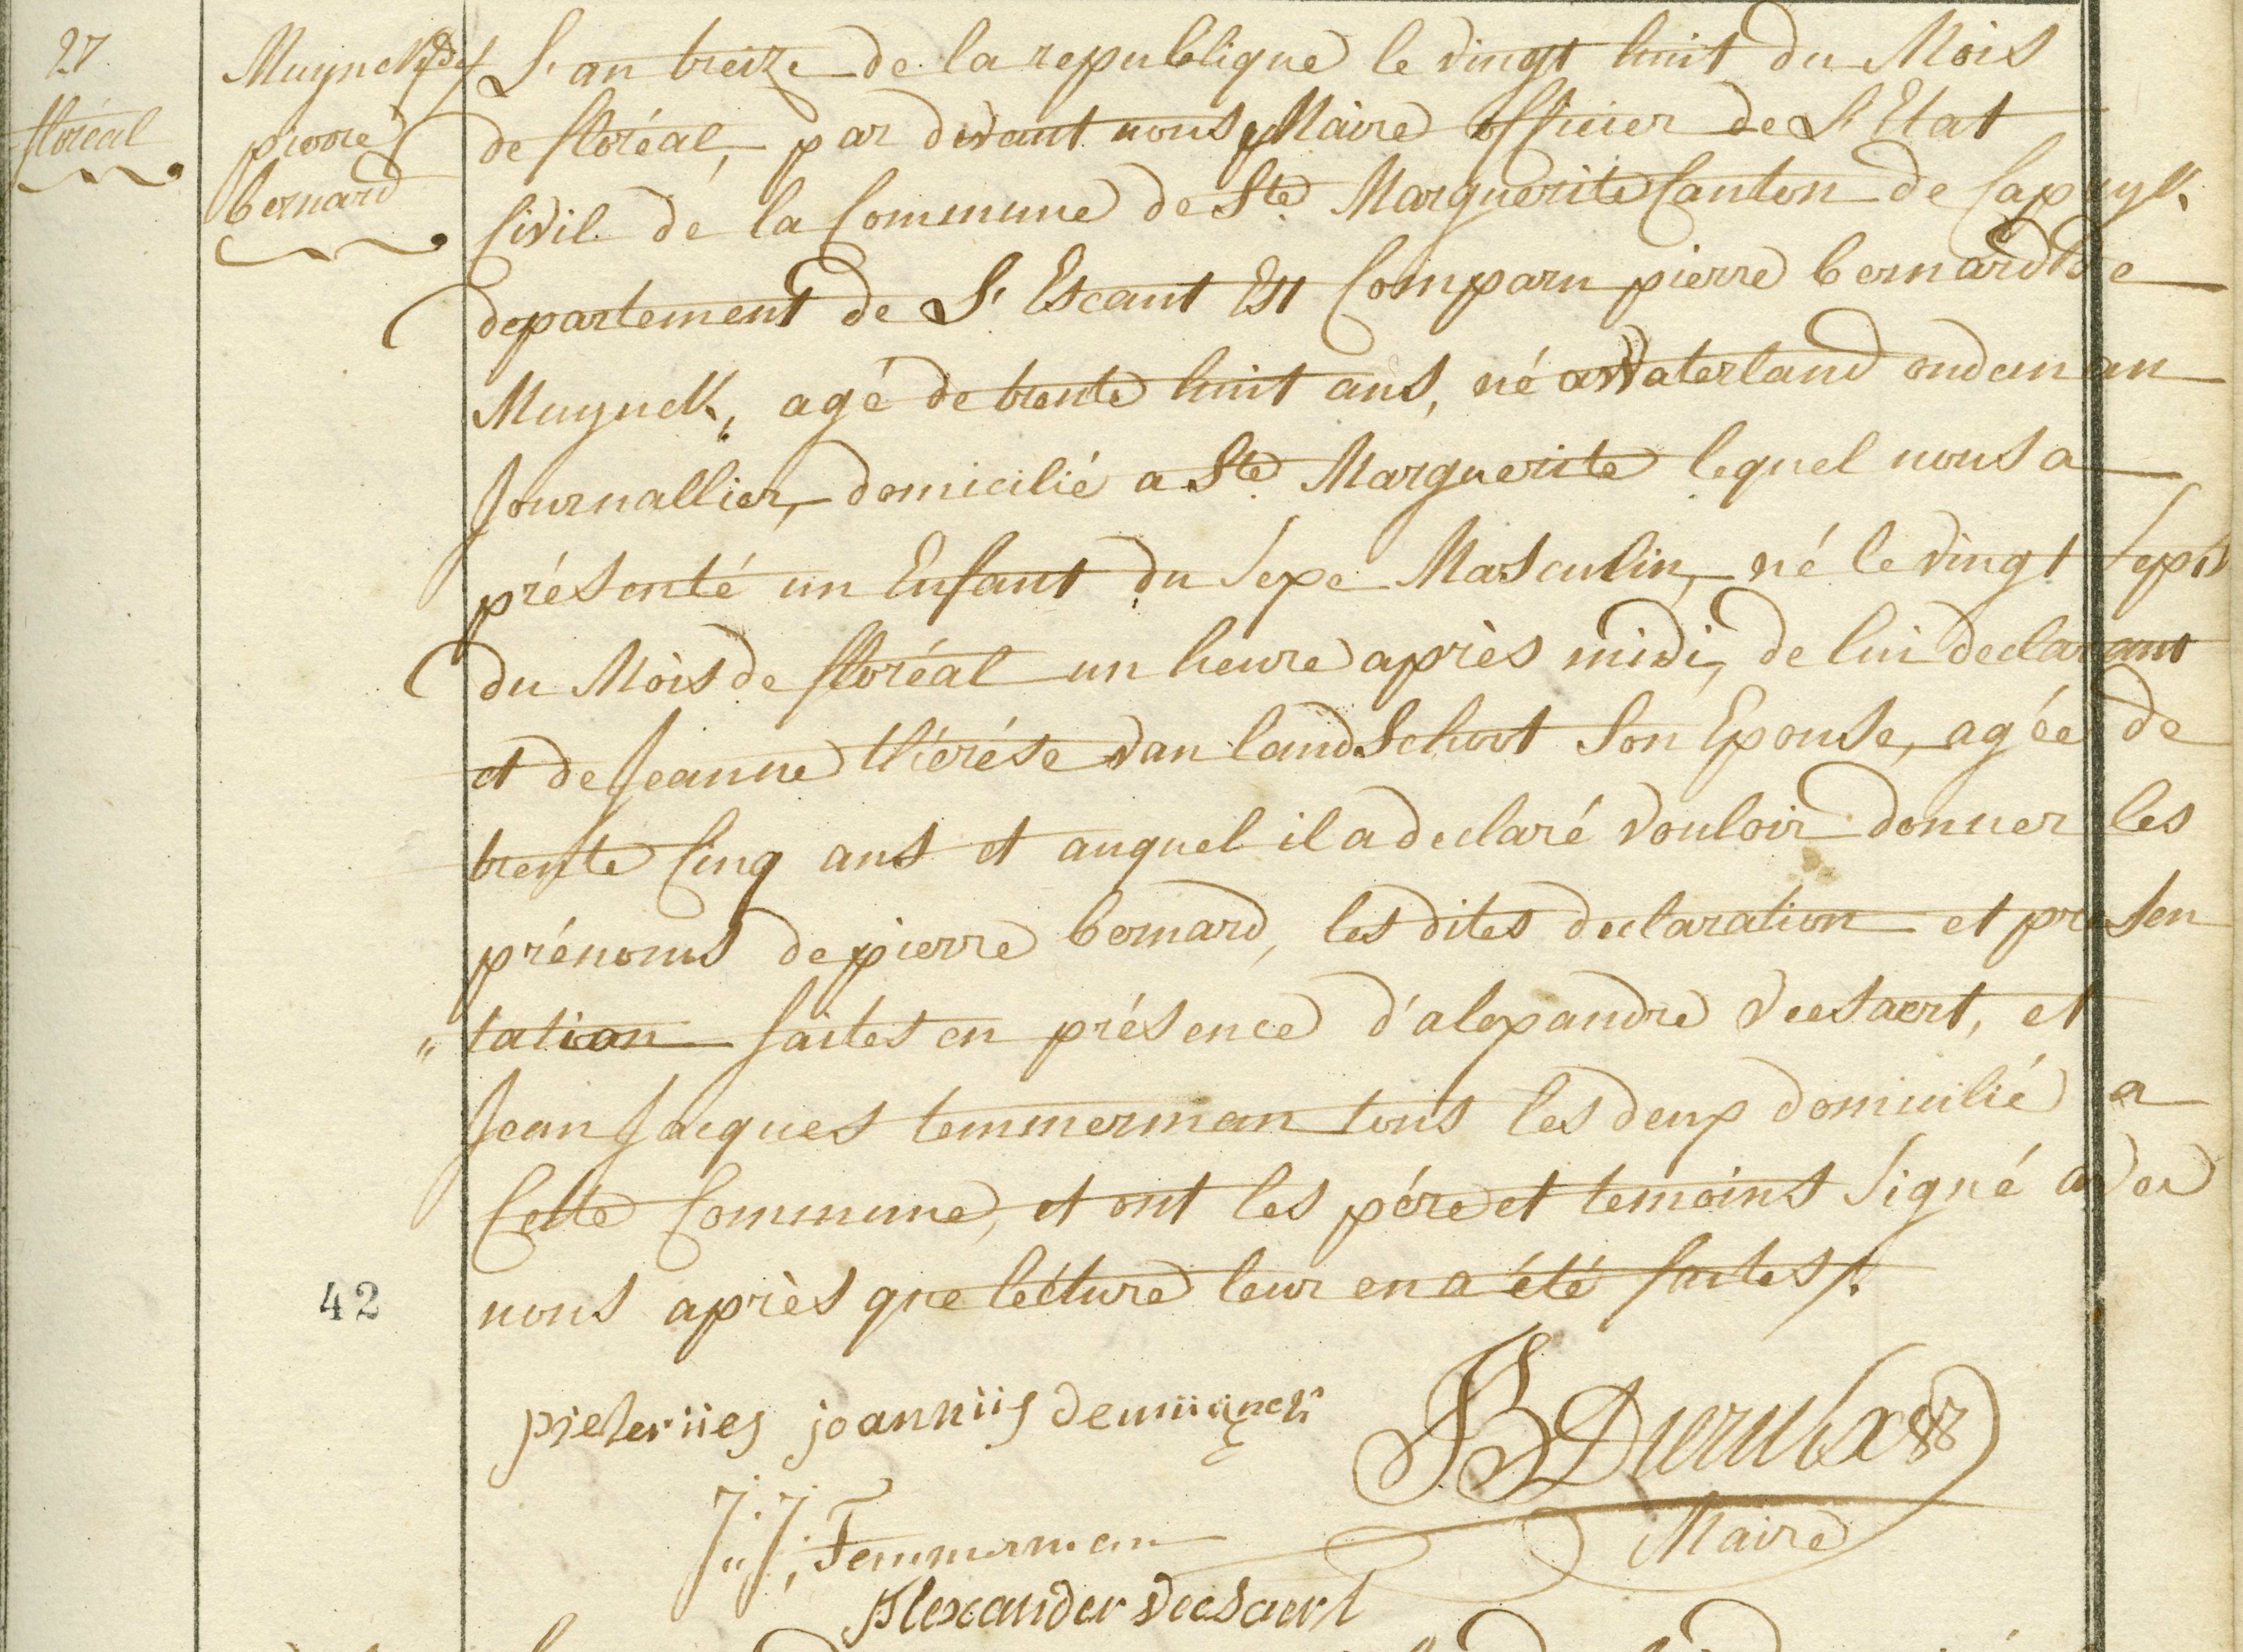 27
floréal
Muynck, de
pierre
bernard
L'an treize de la republique le vingt huit du Mois
de floréal, par devant nous Maire officier de L'Etat
Civil de la Commune de Ste Marguerite Canton de Capryk,
departement de L'Escaut Est Comparu pierre bernard De
Muynck, agé de trente huit ans, né a Waterland oudeman
Journallier, domicilié a Ste Marguerite lequel nous a
présenté un Enfant du Sexe Masculin, né le vingt Sept
du Mois de floréal un heure après midi, de lui declarant
et de Jeanne thérése van landSchoot Son Epouse, agée de
trente Cinq ans et auquel il a declaré vouloir donner les
prénoms de pierre bernard, les dites declaration et presen
„tation faites en présence d'alexandre VeeSaert, et
Jean Jacques temmerman tous les deux domicilié a
Cette Commune, et ont les pére et temoins Signé avec
nous après que lécture leur en a été faites/.
42
pieteriies joanniis demuijnck
J:J: Temmerman
Maire
Alexander VeeSaert